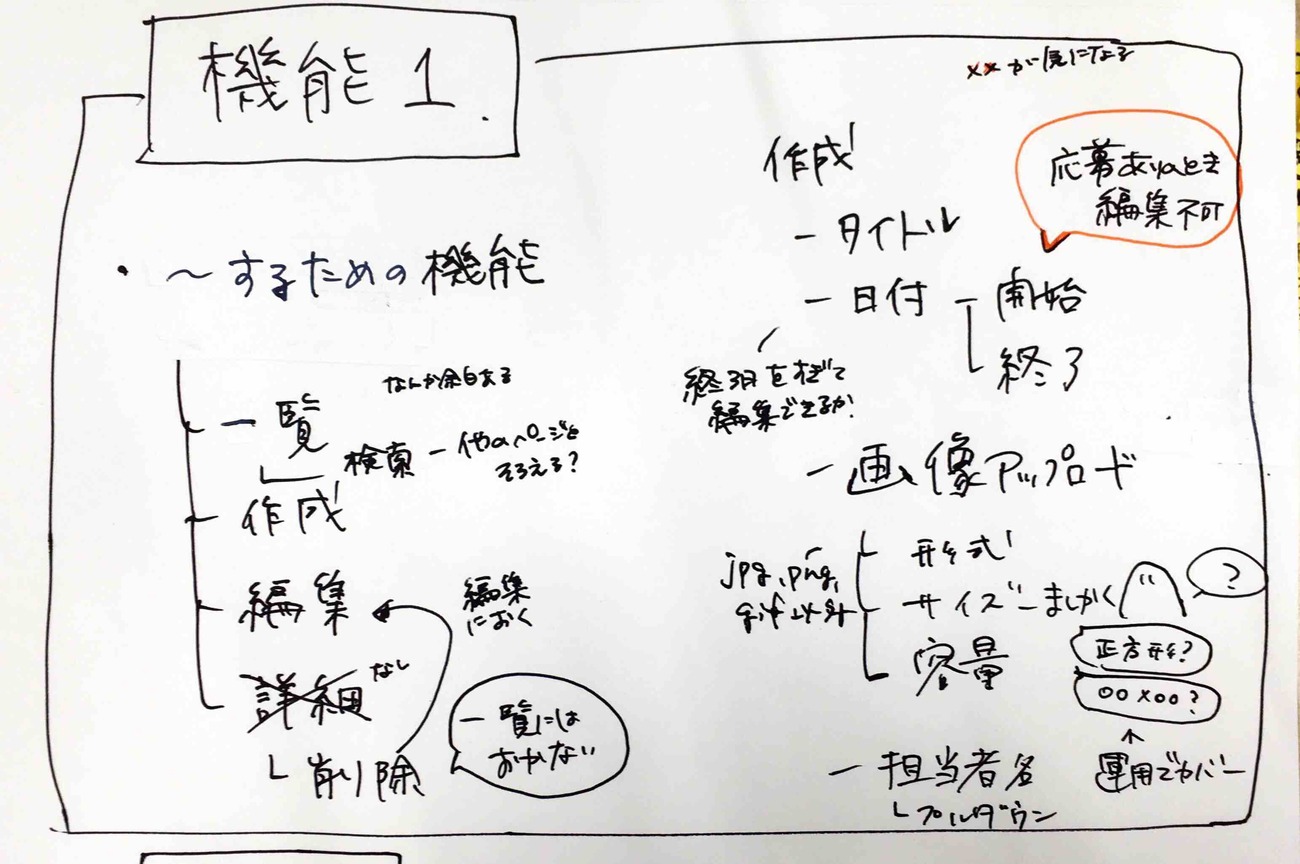 機能 1
××が気になる
・～するための機能
なんか余白ある
一覧
検索 ー 他のページと
そろえる?
作成
編集
編集
におく
詳細
なし
削除
一覧には
おかない
作成
応募ありのとき
編集不可
ー タイトル
ー 日付 ー 開始
終了
終了日をすぎて
編集できるか
ー 画像アップロード
形式
jpg、png、
gif以外
サイズ ー ましかく
?
正方形?
○○×○○?
容量
運用でカバー
ー 担当者名
プルダウン